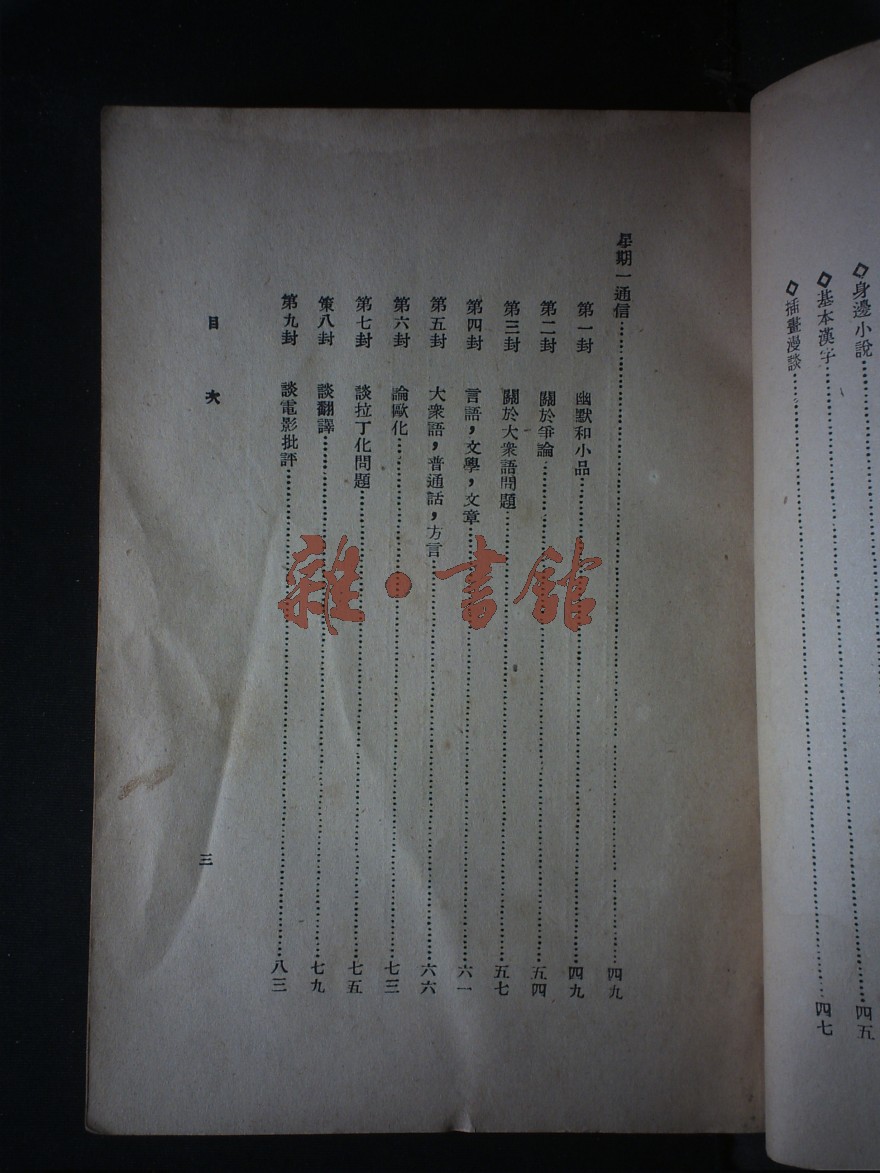 ◇身邊小說……四五
◇基本漢字……四七
◇插畫漫談……
星期一通信……四九
第一封 幽默和小品……四九
第二封 關於爭論……五四
第三封 關於大衆語問題……五七
第四封 言語，文學，文章……六一
第五封 大衆語，普通話，方言……六六
第六封 論歐化……七三
第七封 談拉丁化問題……七五
策八封 談翻譯……七九
第九封 談電影批評……八三
目次
三
雜·書館